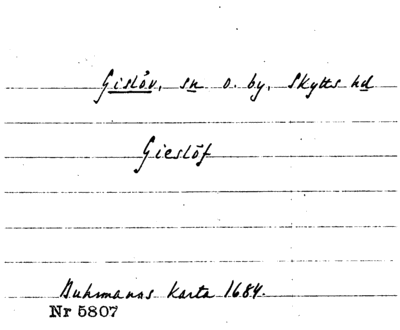 Gislöv, sn o. by, Skytts hd
Gieslöf
Buhrmanns Karta 1684.
Nr 5807